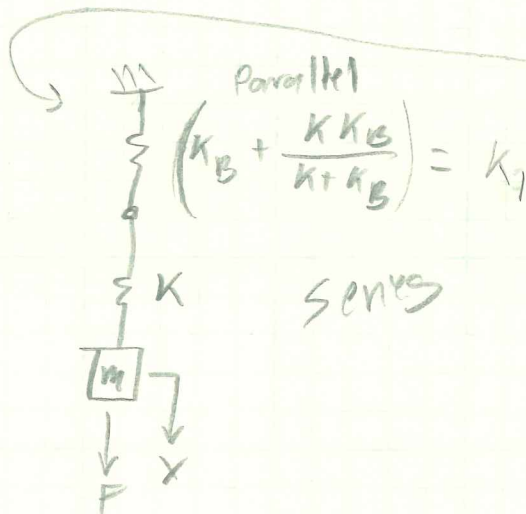 Parallel
(K_B + \frac{K K_B}{K + K_B}) = K_1
K
series
m
F
X